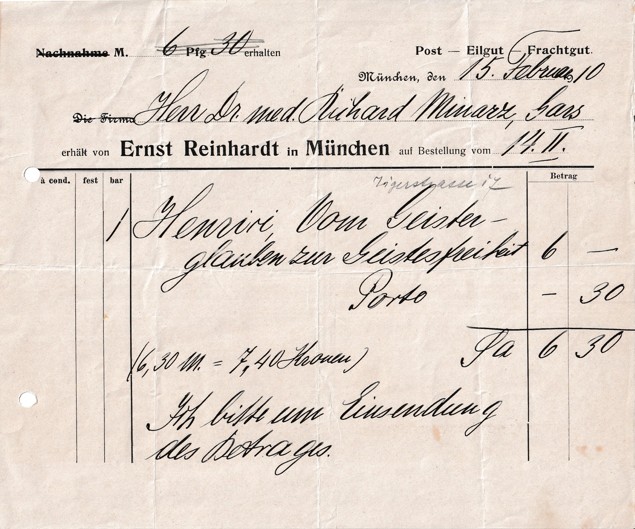 Nachnahme M. 6 Pfg 30 erhalten
Post — Eilgut — Frachtgut.
München, den 15. Februar 10
Die Firma Herr Dr. med. Richard Minarz,
erhält von Ernst Reinhardt in München auf Bestellung vom 14. II.
à cond. fest bar Betrag
1 Henrici, Vom Geister-
glauben zur Geistesfreiheit 6 —
Porto — 30
Sa 6 30
(6,30 M. = 7,40 Kronen)
Ich bitte um Einsendung
des Betrages.